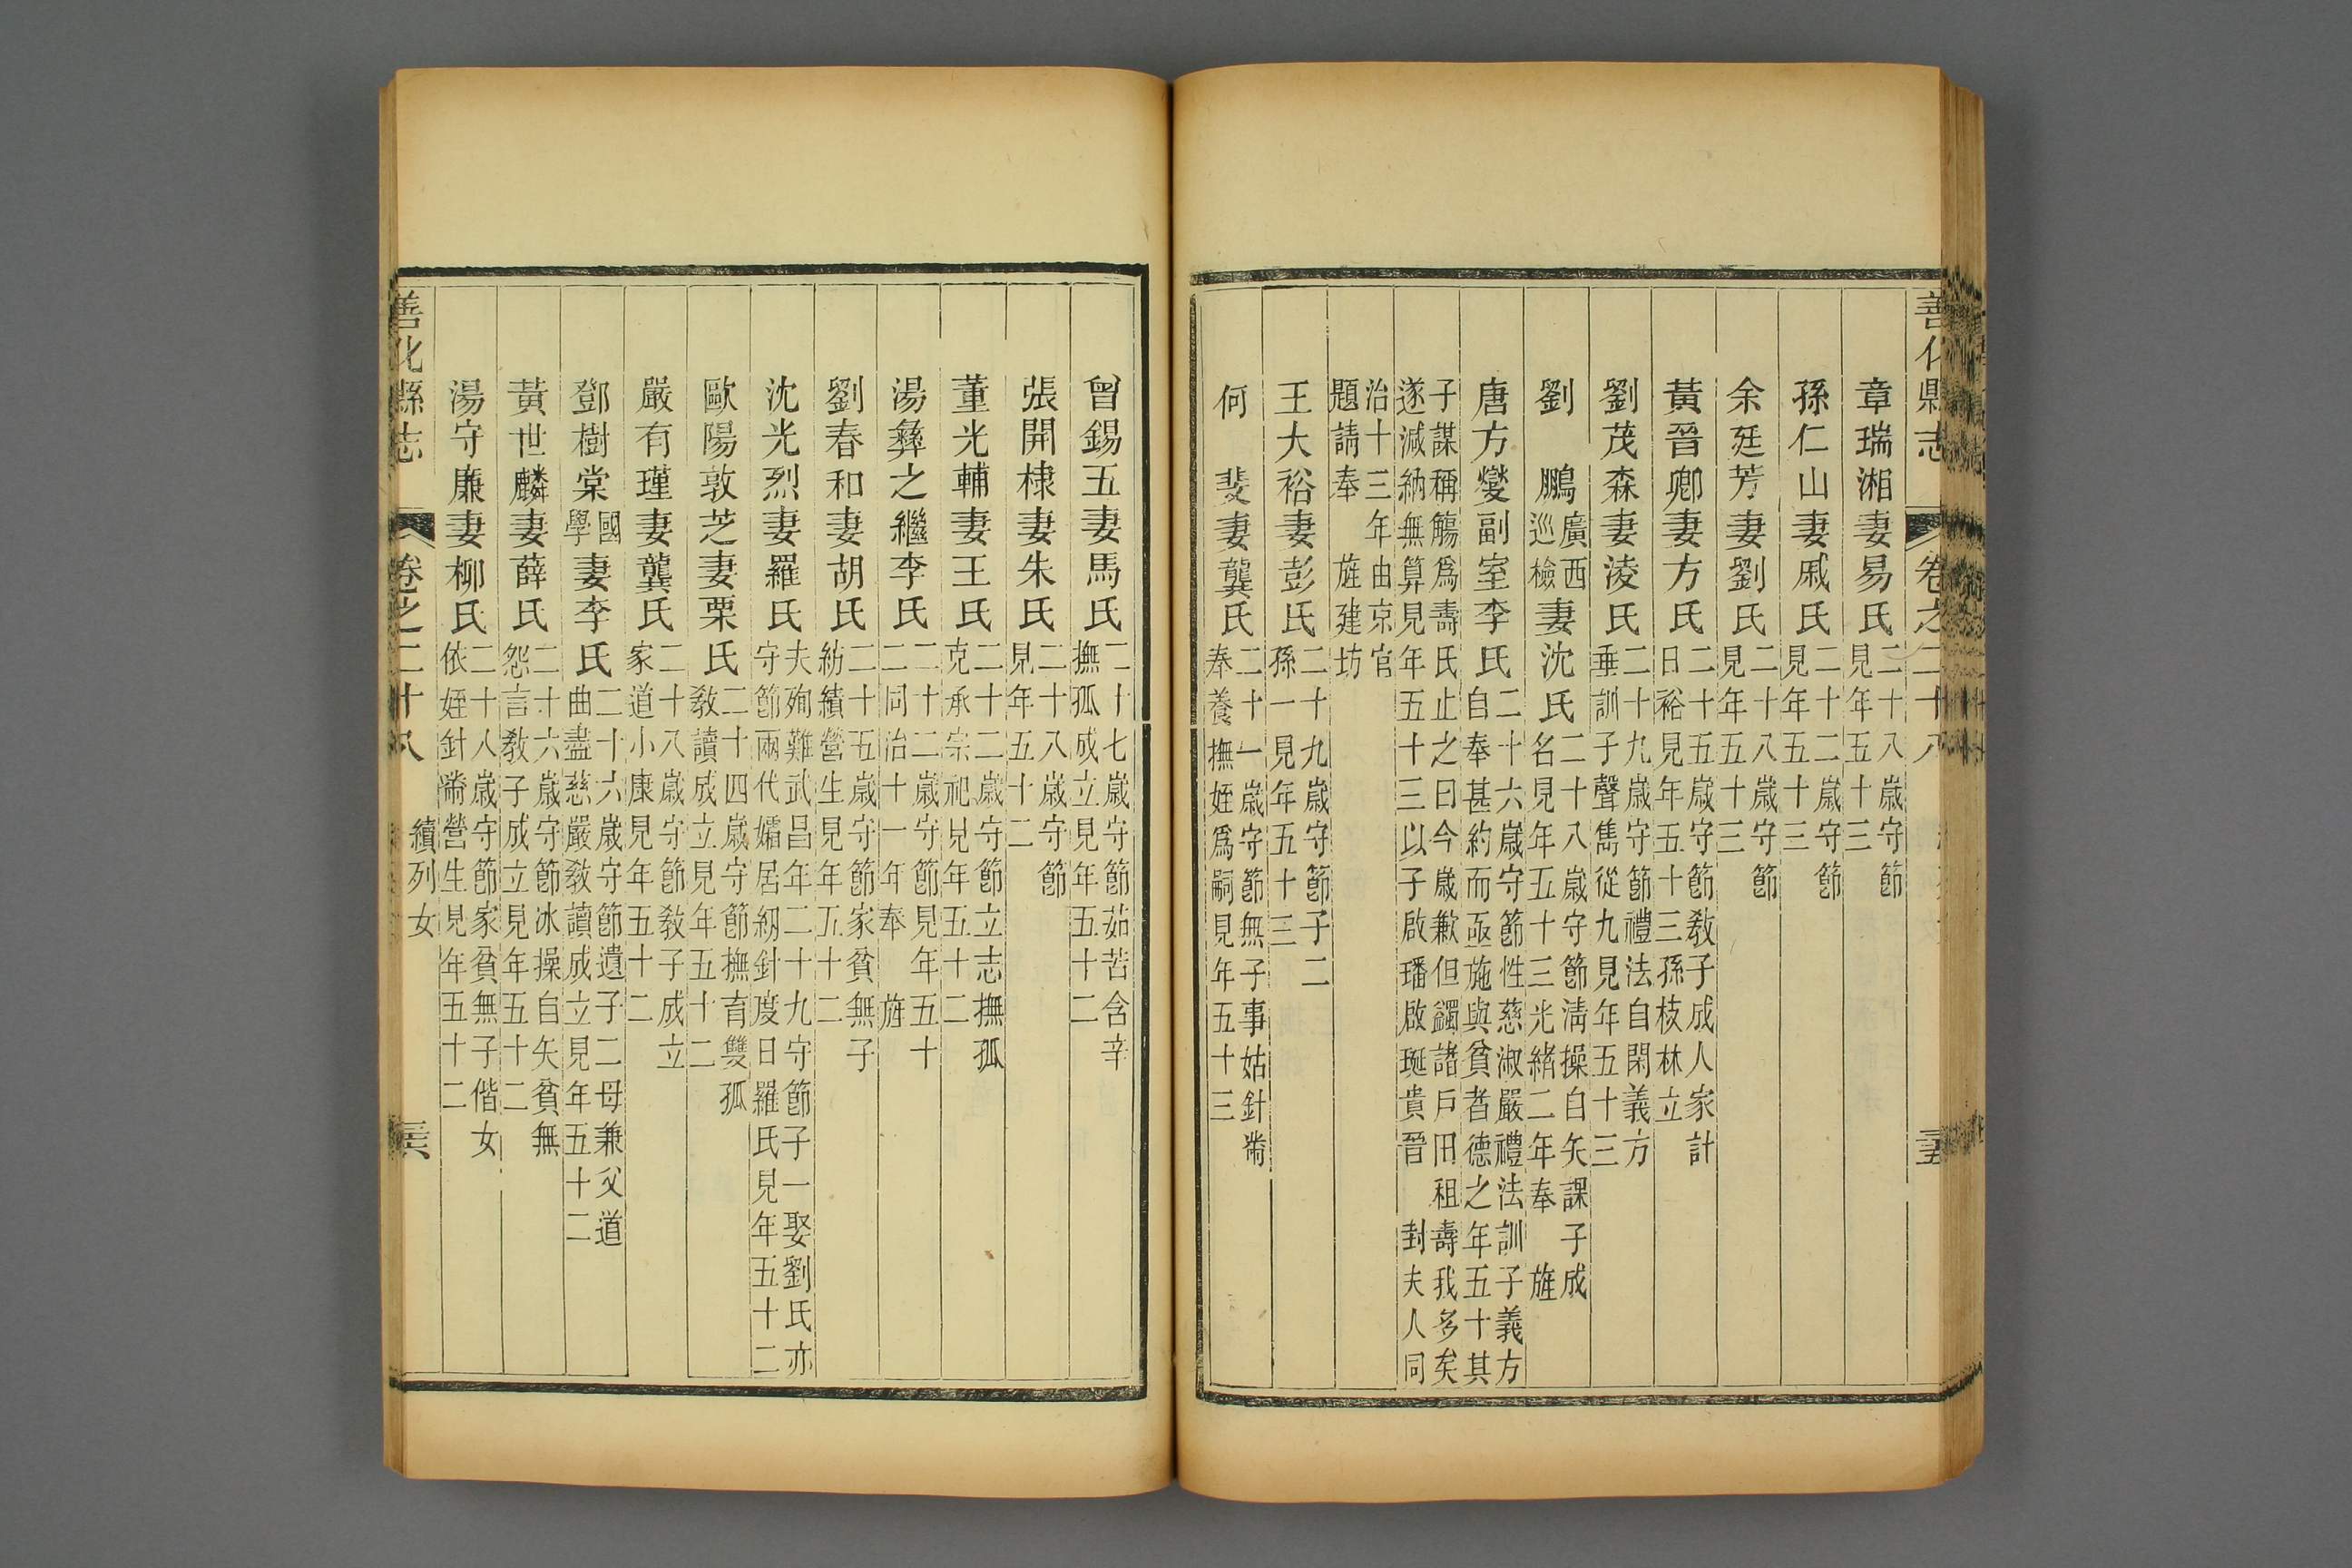 善化縣志 卷之二十八 三五
章瑞湘妻易氏二十八歲守節見年五十三
孫仁山妻戚氏二十二歲守節見年五十三
余廷芳妻劉氏二十八歲守節見年五十三
黃晉卿妻方氏二十五歲守節教子成人家計日裕見年五十三孫枝林立
劉茂森妻淩氏二十九歲守節禮法自閑義方垂訓子聲雋從九見年五十三
劉鵬廣西巡檢妻沈氏二十八歲守節淸操自矢課子成名見年五十三光緒二年奉旌
唐方燮副室李氏二十六歲守節性慈淑嚴禮法訓子義方自奉甚約而亟施與貧者德之年五十其
子謀稱觴爲壽氏止之曰今歲歉但蠲諸戶田租壽我多矣遂減納無算見年五十三以子啟璠啟珽貴晉封夫人同
治十三年由京官題請奉旌建坊
王大裕妻彭氏二十九歲守節子二孫一見年五十三
何斐妻龔氏二十一歲守節無子事姑針黹奉養撫姪爲嗣見年五十三
曾錫五妻馬氏二十七歲守節茹苦含辛撫孤成立見年五十二
張開棣妻朱氏二十八歲守節見年五十二
董光輔妻王氏二十二歲守節立志撫孤克承宗祀見年五十二
湯彝之繼李氏二十二歲守節見年五十二同治十一年奉旌
劉春和妻胡氏二十五歲守節家貧無子紡績營生見年五十二
沈光烈妻羅氏夫殉難武昌年二十九守節子一娶劉氏亦守節兩代孀居紉針度日羅氏見年五十二
歐陽敦芝妻栗氏二十四歲守節撫育雙孤教讀成立見年五十二
嚴有瑾妻龔氏二十八歲守節教子成立家道小康見年五十二
鄧樹棠國學妻李氏二十六歲守節遺子二母兼父道曲盡慈嚴教讀成立見年五十二
黃世麟妻薛氏二十六歲守節冰操自矢貧無怨言教子成立見年五十二
湯守廉妻柳氏二十八歲守節家貧無子偕女依姪針黹營生見年五十二
善化縣志 卷之二十八 續列女 三六